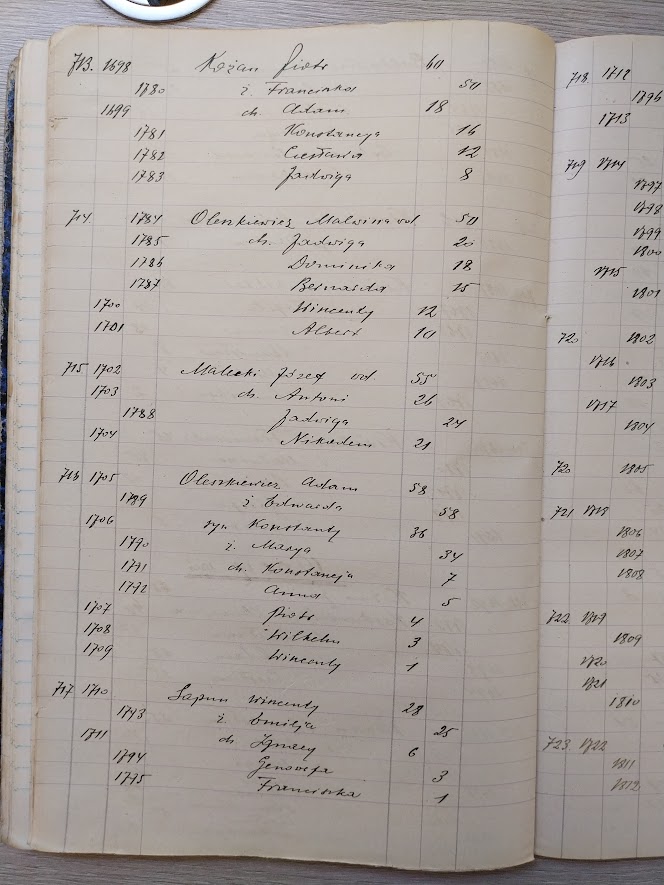 713. 1698 Kożan Piotr 60
1780 ż. Franciszka 50
1699 ch. Adam 18
1781 Konstancya 16
1782 Czesława 12
1783 Jadwiga 8
714 1784 Oleszkiewicz Malwina wd. 50
1785 ch. Jadwiga 20
1786 Dominika 18
1787 Bernarda 15
1700 Wincenty 12
1701 Albert 10
715 1702 Malecki Józef wd. 55
1703 ch. Antoni 26
1788 Jadwiga 24
1704 Nikodem 21
716 1705 Oleszkiewicz Adam 58
1789 ż. Edwarda 58
1706 syn Konstanty 36
1790 ż. Marya 34
1791 ch. Konstancja 7
1792 Anna 5
1707 Piotr 4
1708 Wilhelm 3
1709 Wincenty 1
717 1710 Sapun Wincenty 28
1793 ż. Emilja 25
1711 ch Ignacy 6
1794 Genowefa 3
1795 Franciszka 1
718. 1712
1796
1713
719 1714
1797
1798
1799
1800
1715
1801
720 1802
1716
1803
1717
1804
720 1805
721 1718
1806
1807
1808
722 1719
1809
1720
1721
1810
723 1722
1811
1812